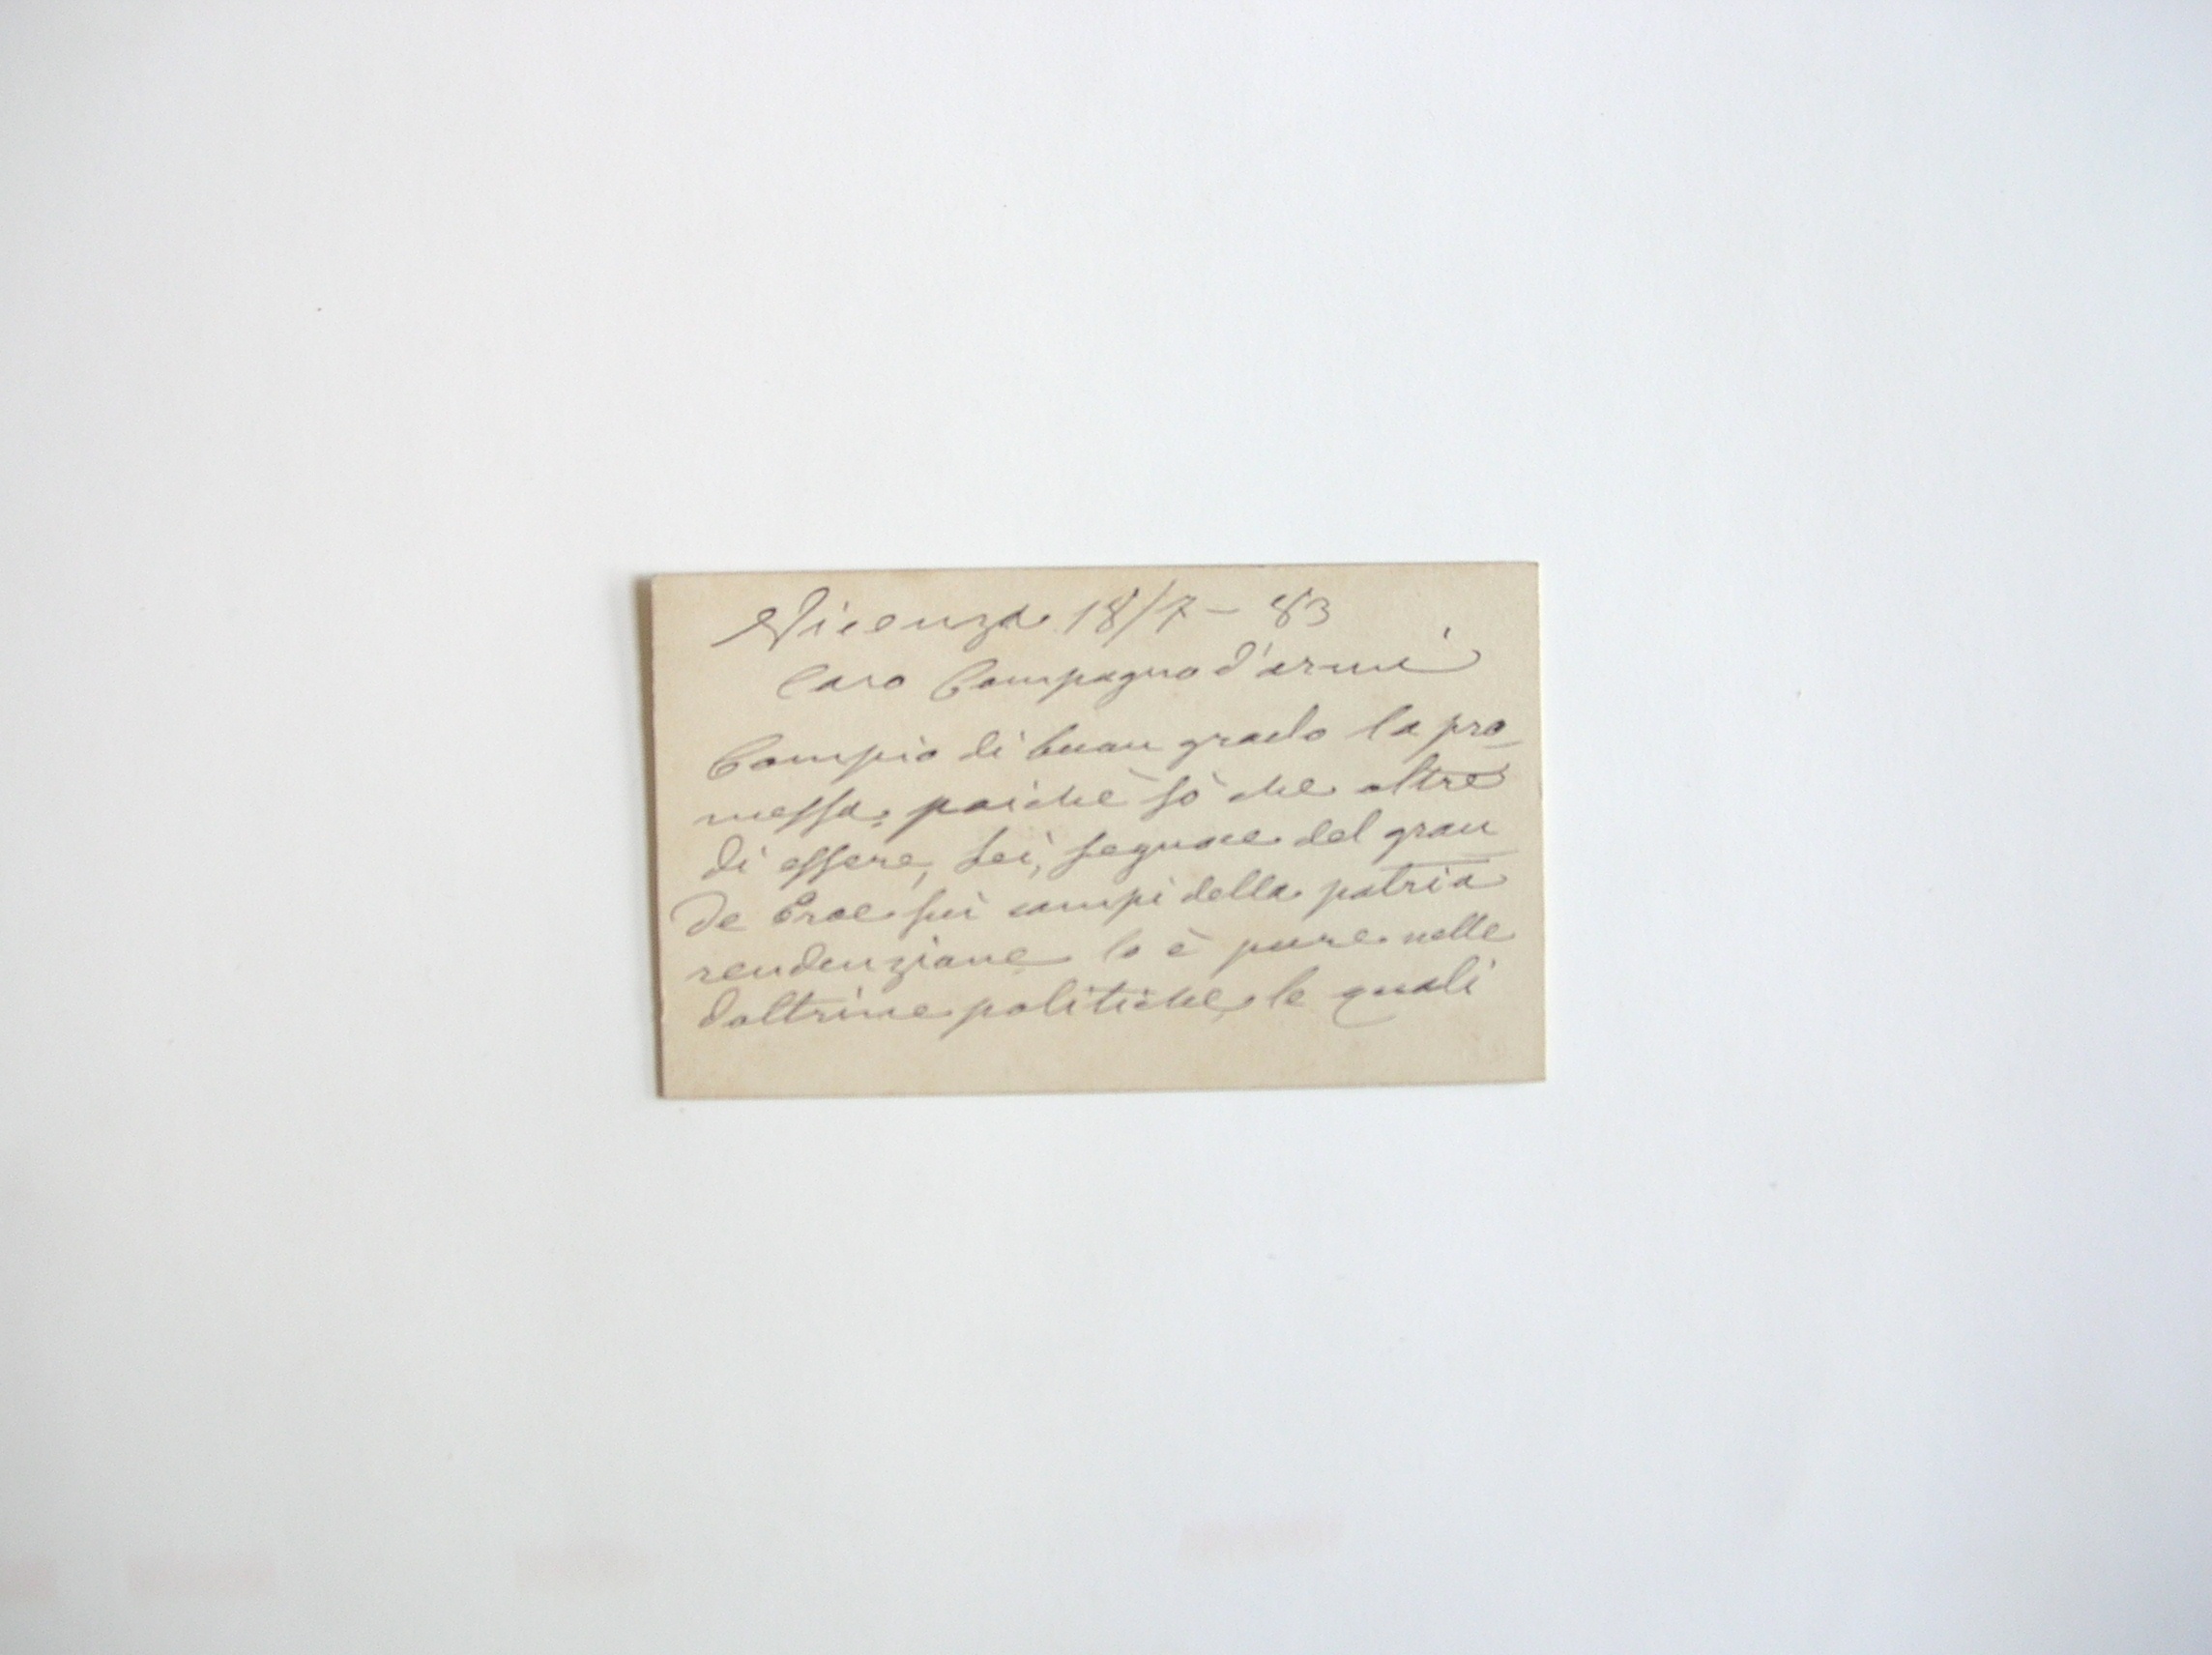 Vicenza 18/7 - 83
Caro Compagno d'armi
Compio di buon grado la pro
messa, poichè sò che oltre
di essere, Lei, seguace del gran
de Eroe sui campi della patria
rendenzione lo è pure nelle
dottrine politiche, le quali